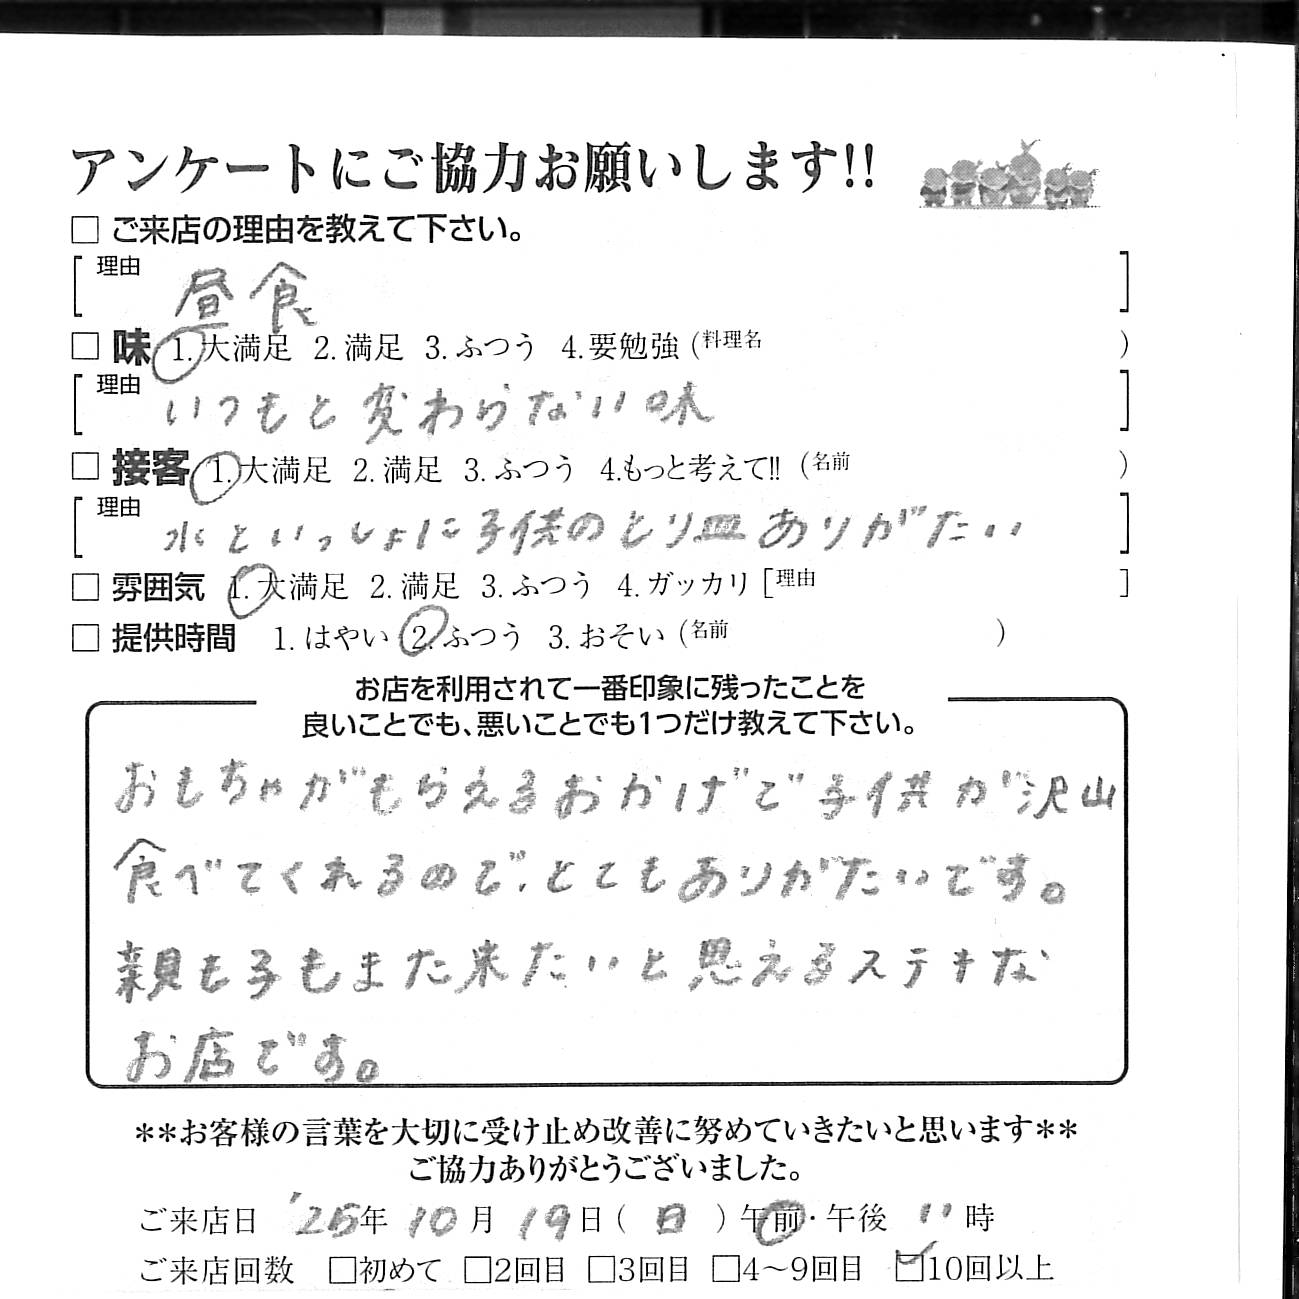 アンケートにご協力お願いします!!
□ ご来店の理由を教えて下さい。
[理由 昼食 ]
□ 味 1.大満足 2.満足 3.ふつう 4.要勉強 (料理名 )
[理由 いつもと変わらない味 ]
□ 接客 1.大満足 2.満足 3.ふつう 4.もっと考えて!! (名前 )
[理由 水といっしょに子供のとり皿ありがたい ]
□ 雰囲気 1.大満足 2.満足 3.ふつう 4.ガッカリ [理由 ]
□ 提供時間 1.はやい 2.ふつう 3.おそい (名前 )
お店を利用されて一番印象に残ったことを
良いことでも、悪いことでも1つだけ教えて下さい。
おもちゃがもらえるおかげで子供が沢山
食べてくれるので、とてもありがたいです。
親も子もまた来たいと思えるステキな
お店です。
**お客様の言葉を大切に受け止め改善に努めていきたいと思います**
ご協力ありがとうございました。
ご来店日 '25年 10月 19日(日)午前・午後 11時
ご来店回数 □初めて □2回目 □3回目 □4〜9回目 ☑10回以上